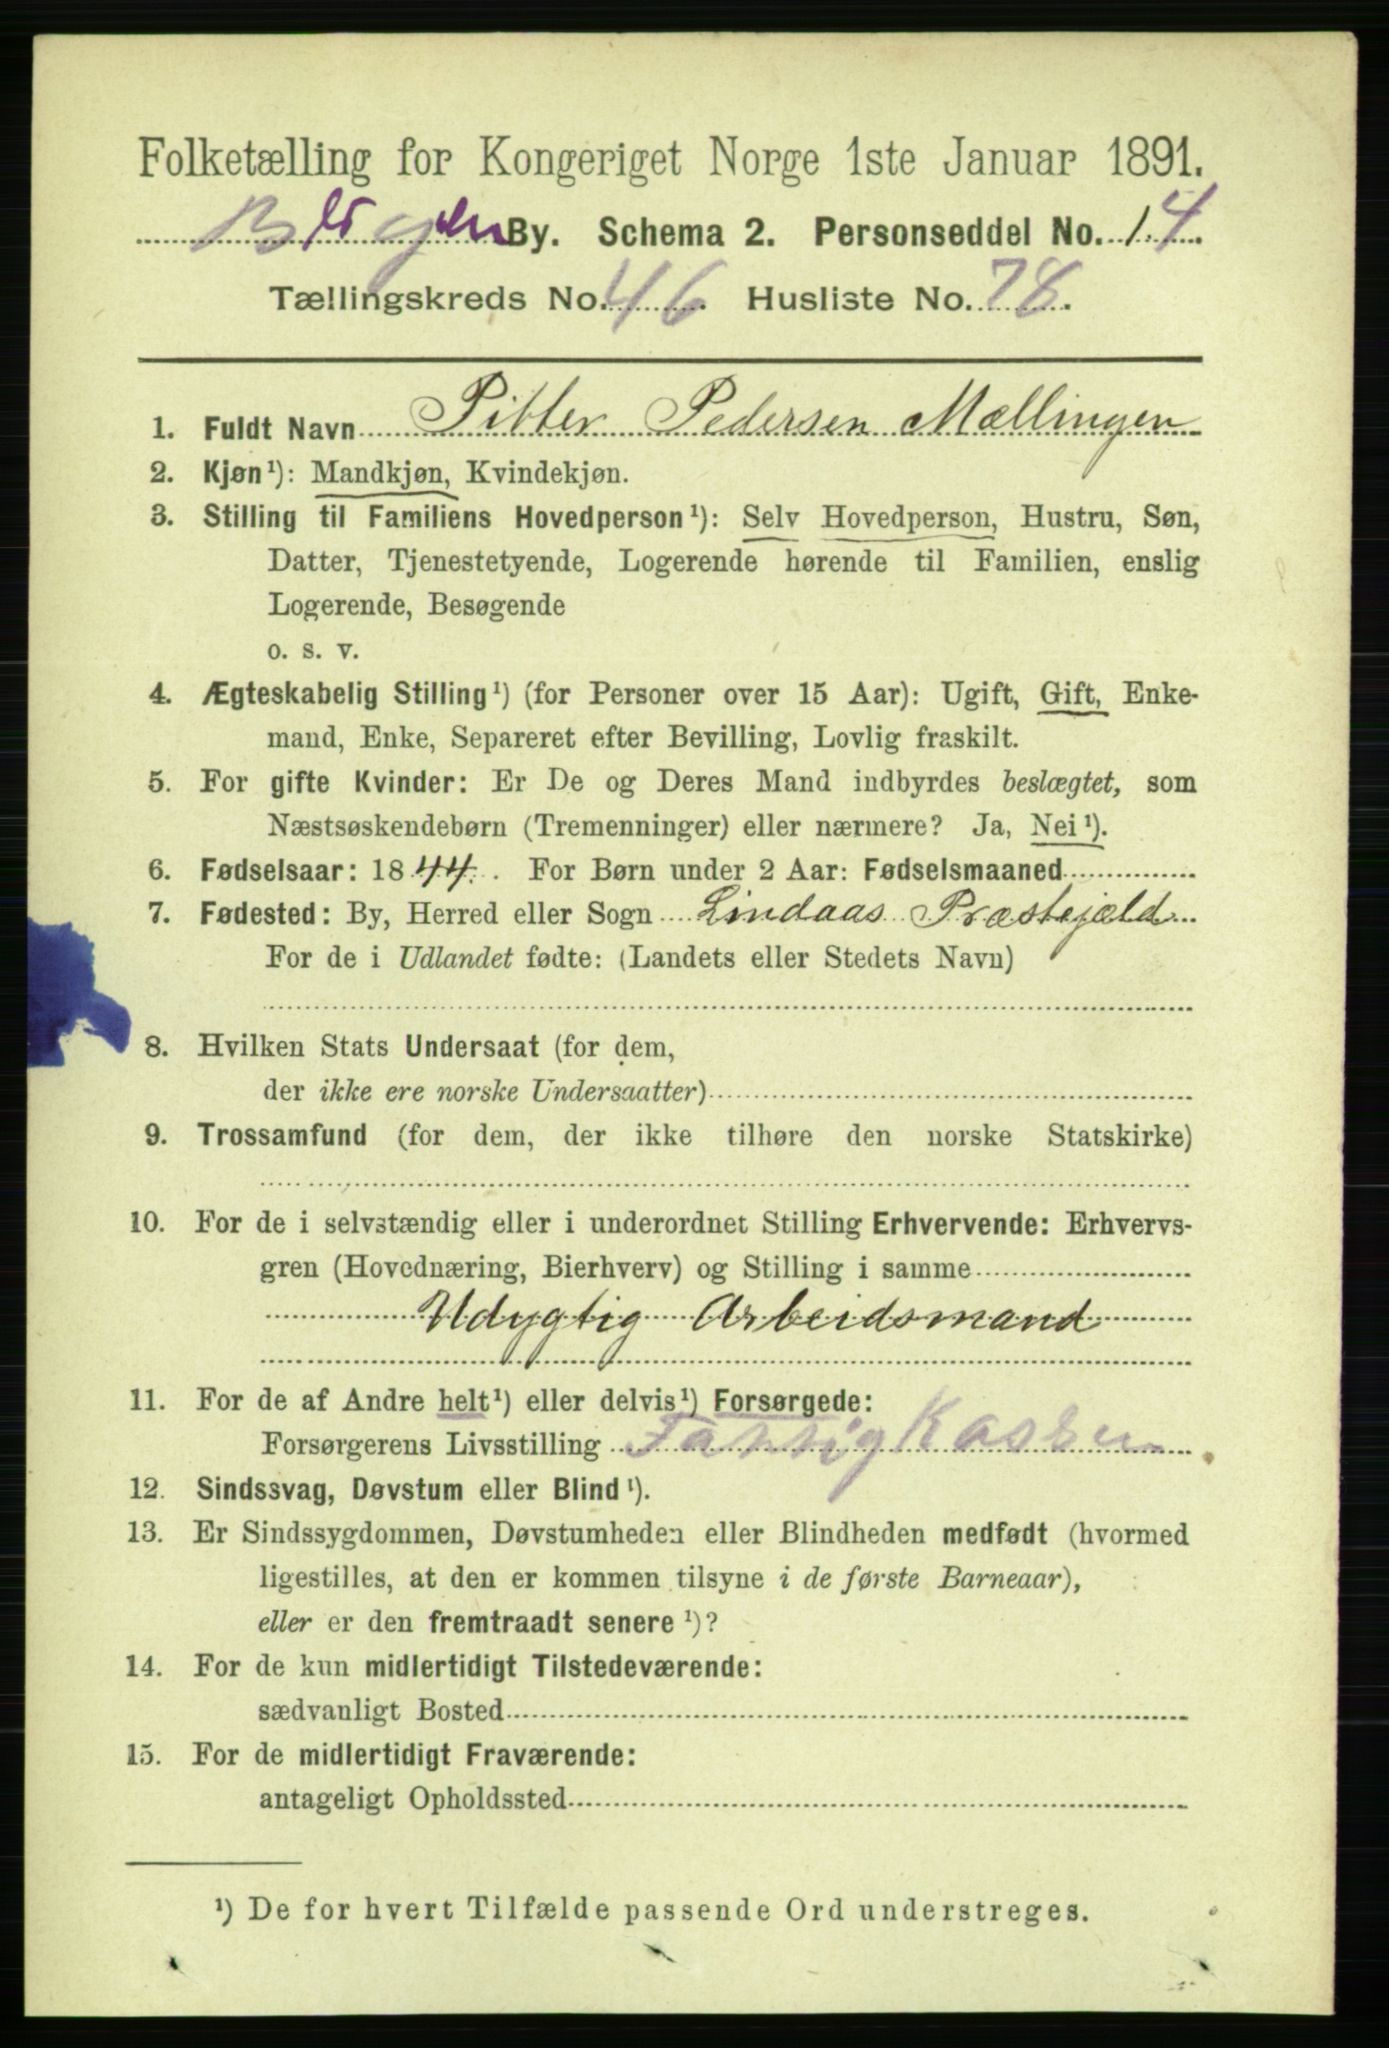 Folketælling for Kongeriget Norge 1ste Januar 1891.
Bergen By. Schema 2. Personseddel No. 14
Tællingskreds No. 46. Husliste No. 78.
1. Fuldt Navn Pitter Pedersen Mællingen
2. Kjøn¹): Mandkjøn, Kvindekjøn.
3. Stilling til Familiens Hovedperson¹): Selv Hovedperson, Hustru, Søn,
Datter, Tjenestetyende, Logerende hørende til Familien, enslig
Logerende, Besøgende
o. s. v.
4. Ægteskabelig Stilling¹) (for Personer over 15 Aar): Ugift, Gift, Enke-
mand, Enke, Separeret efter Bevilling, Lovlig fraskilt.
5. For gifte Kvinder: Er De og Deres Mand indbyrdes beslægtet, som
Næstsøskendebørn (Tremenninger) eller nærmere? Ja, Nei¹).
6. Fødselsaar: 1844. For Børn under 2 Aar: Fødselsmaaned
7. Fødested: By, Herred eller Sogn Lindaas Præstejæld
For de i Udlandet fødte: (Landets eller Stedets Navn)
8. Hvilken Stats Undersaat (for dem,
der ikke ere norske Undersaatter)
9. Trossamfund (for dem, der ikke tilhøre den norske Statskirke)
10. For de i selvstændig eller i underordnet Stilling Erhvervende: Erhvervs-
gren (Hovednæring, Bierhverv) og Stilling i samme
Udygtig Arbeidsmand
11. For de af Andre helt¹) eller delvis¹) Forsørgede:
Forsørgerens Livsstilling Fattig Kassen
12. Sindssvag, Døvstum eller Blind¹).
13. Er Sindssygdommen, Døvstumheden eller Blindheden medfødt (hvormed
ligestilles, at den er kommen tilsyne i de første Barneaar),
eller er den fremtraadt senere¹)?
14. For de kun midlertidigt Tilstedeværende:
sædvanligt Bosted
15. For de midlertidigt Fraværende:
antageligt Opholdssted
¹) De for hvert Tilfælde passende Ord understreges.